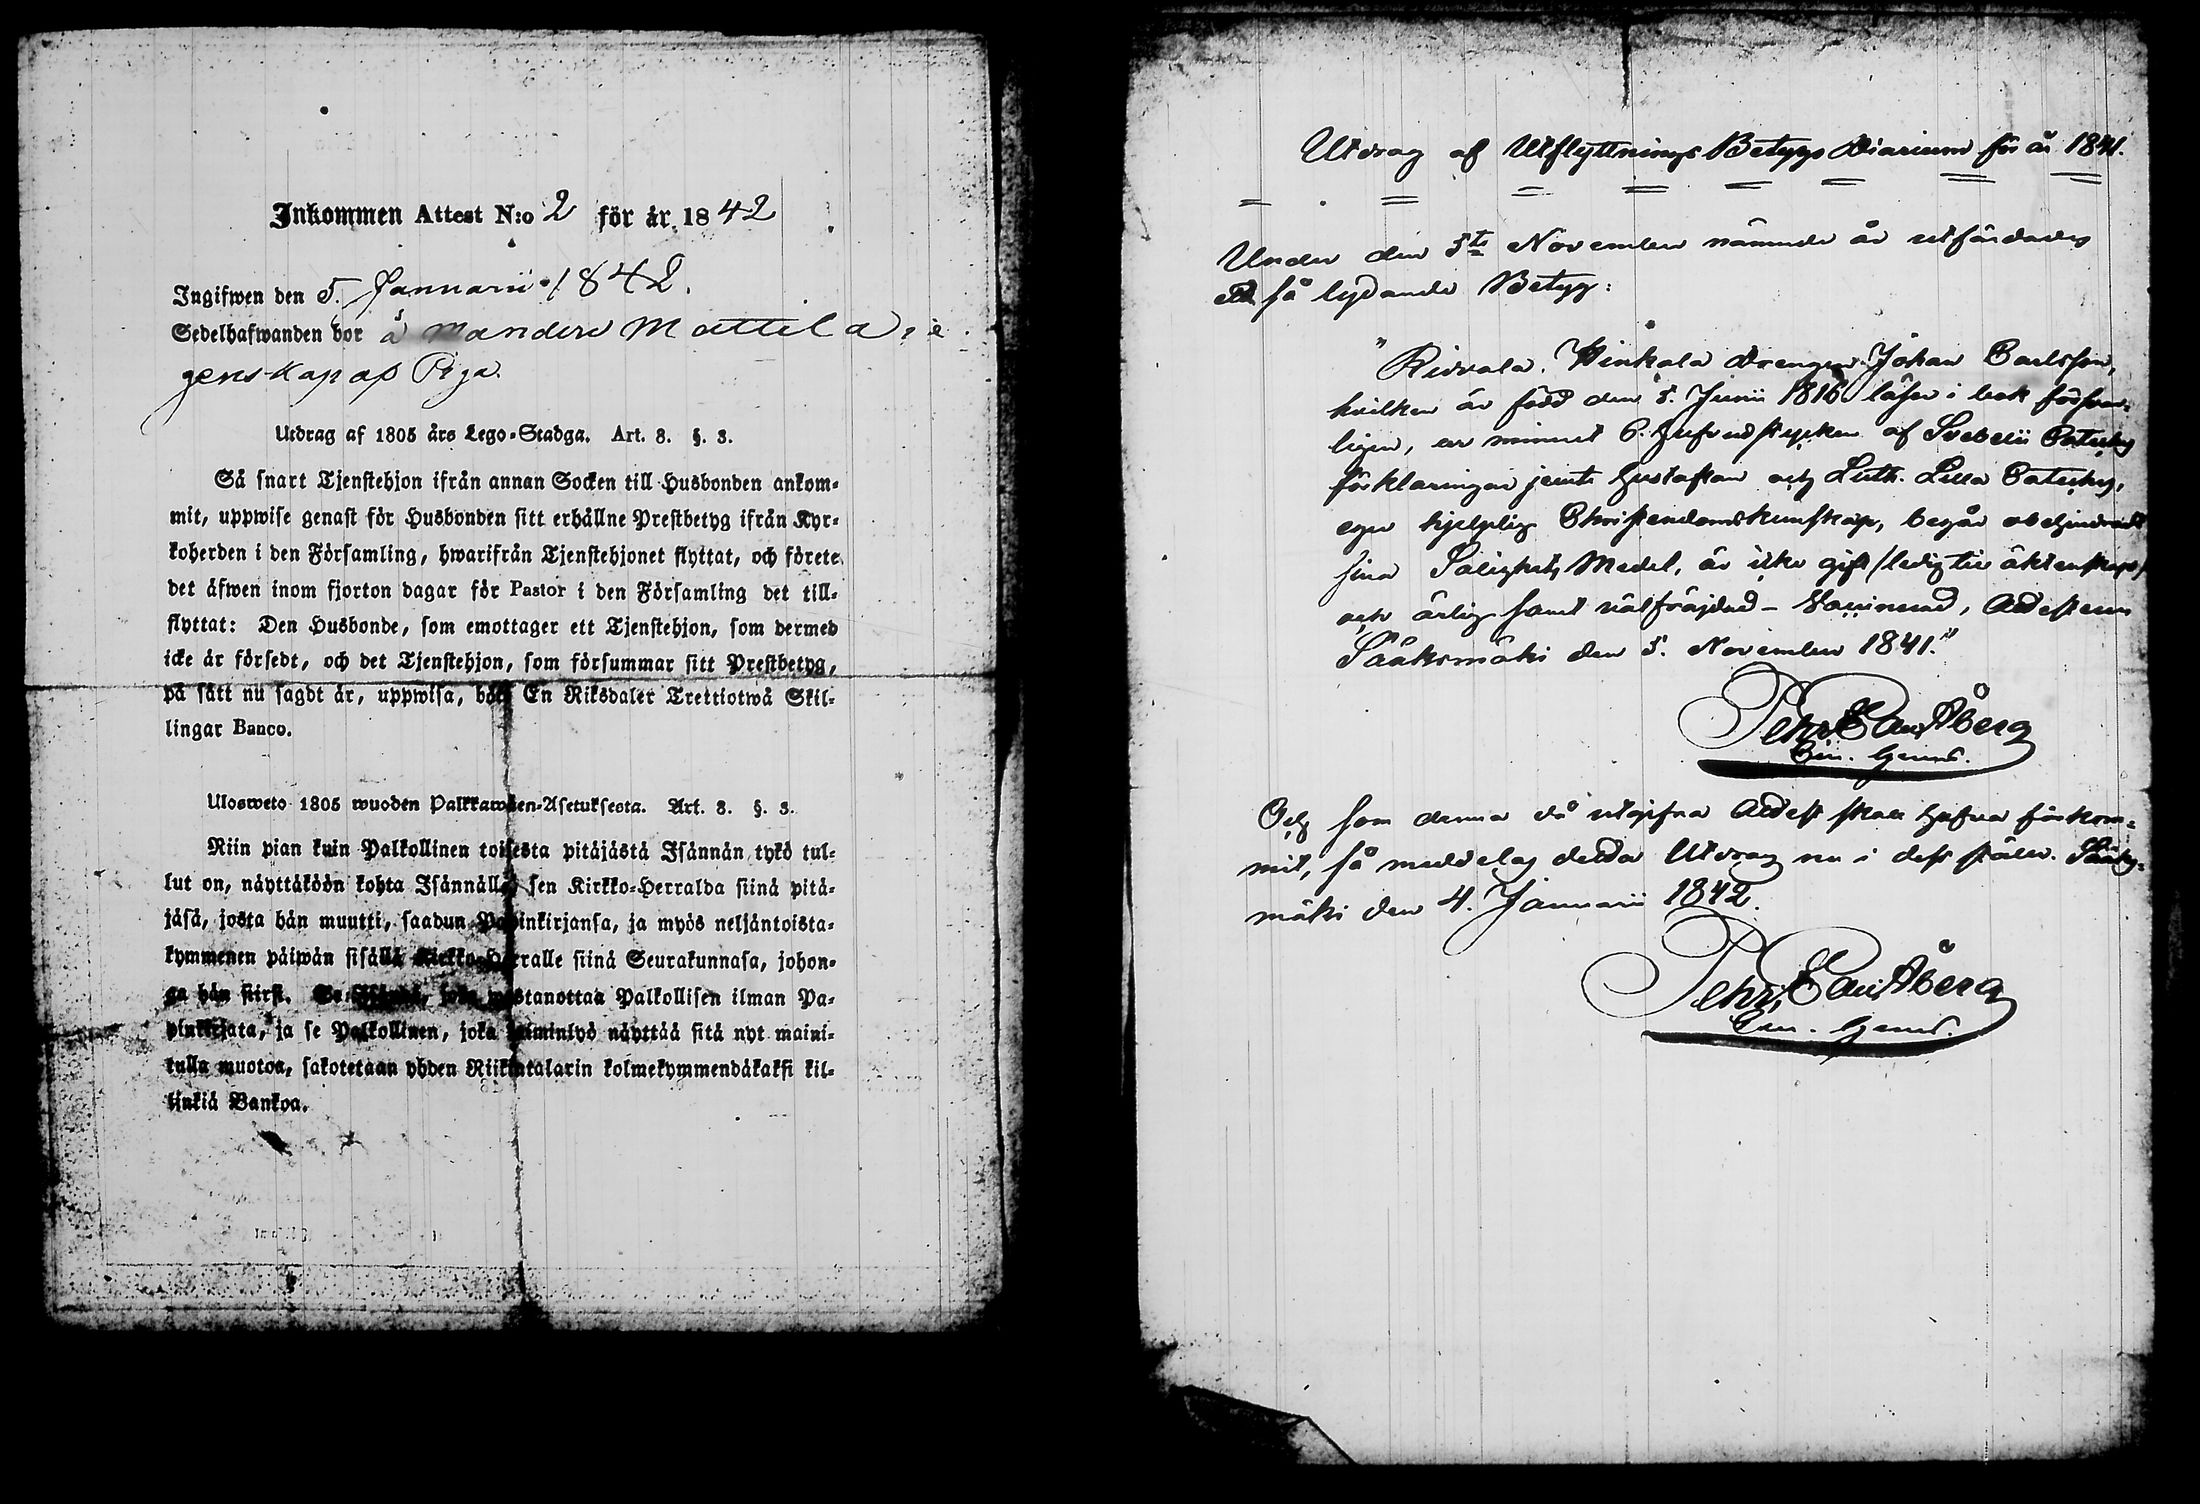 Inkommen Attest N:o 2 för år 1842
Ingifwen den 5. Januarii 1842.
Sedelhafwanden bor å Mandere Mattila, i e
genskap af Piga.
Utdrag af 1805 års Lego-Stadga. Art. 3. §. 3.
Så snart Tjenstehjon ifrån annan Socken till Husbonden ankom-
mit, uppwise genast för Husbonden sitt erhållne Prestbetyg ifrån Kyr-
koherden i den Församling, hwarifrån Tjenstehjonet flyttat, och förete
det äfwen inom fjorton dagar för Pastor i den Församling det till-
flyttat: Den Husbonde, som emottager ett Tjenstehjon, som dermed
icke är försedt, och det Tjenstehjon, som försummar sitt Prestbetyg,
på sätt nu sagdt är, uppwisa, böte En Riksdaler Trettiotwå Skil-
lingar Banco.
Ulosweto 1805 wuoden Palkkawäen-Asetuksesta. Art. 3. §. 3.
Niin pian kuin Palkollinen toisesta pitäjästä Isännän tykö tul-
lut on, näyttäköön kohta Isännälle sen Kirkko-Herralda siinä pitä-
jäsä, josta hän muutti, saadun Papinkirjansa, ja myös neljäntoista-
kymmenen päiwän sisällä Kirkko-Herralle siinä Seurakunnasa, johon-
ga hän siirst. Se Isändä, joka wastanottaa Palkollisen ilman Pa-
pinkirjata, ja se Palkollinen, joka laiminlyö näyttää sitä nyt maini-
tulla muotoa, sakotetaan yhden Riikintalarin kolmekymmendäkaksi kil-
linkiä Bankoa.
Utdrag af Utflyttnings Betygs Diarium för år 1841.
Under den 5te November nämnde år utfärdades
så lydande Betyg:
"Ridvala. Hinkala Drengen Johan Carlsson,
hvilken är född den 5. Junii 1816 läser i bok försvar-
ligen, ur minnet 6. Hufvudstycken af Svebelii Cateches
förklaringar jemte Hustaflan och Luth. Lilla Cateches,
eger hjelplig Christendomskunskap, begår obehindradt
sina Salighets Medel, är icke gift /ledig till äktenskap/
och ärlig samt välfräjdad – Vaccinerad, Attesteras
Sääksmäki den 5. November 1841."
Pehr Edu. Åberg
Och som denna då utgifna Attest skall hafva förkom-
mit, så meddelas detta Utdrag nu i dess ställe. Sääks-
mäki den 4. Januarii 1842.
Pehr Edu. Åberg